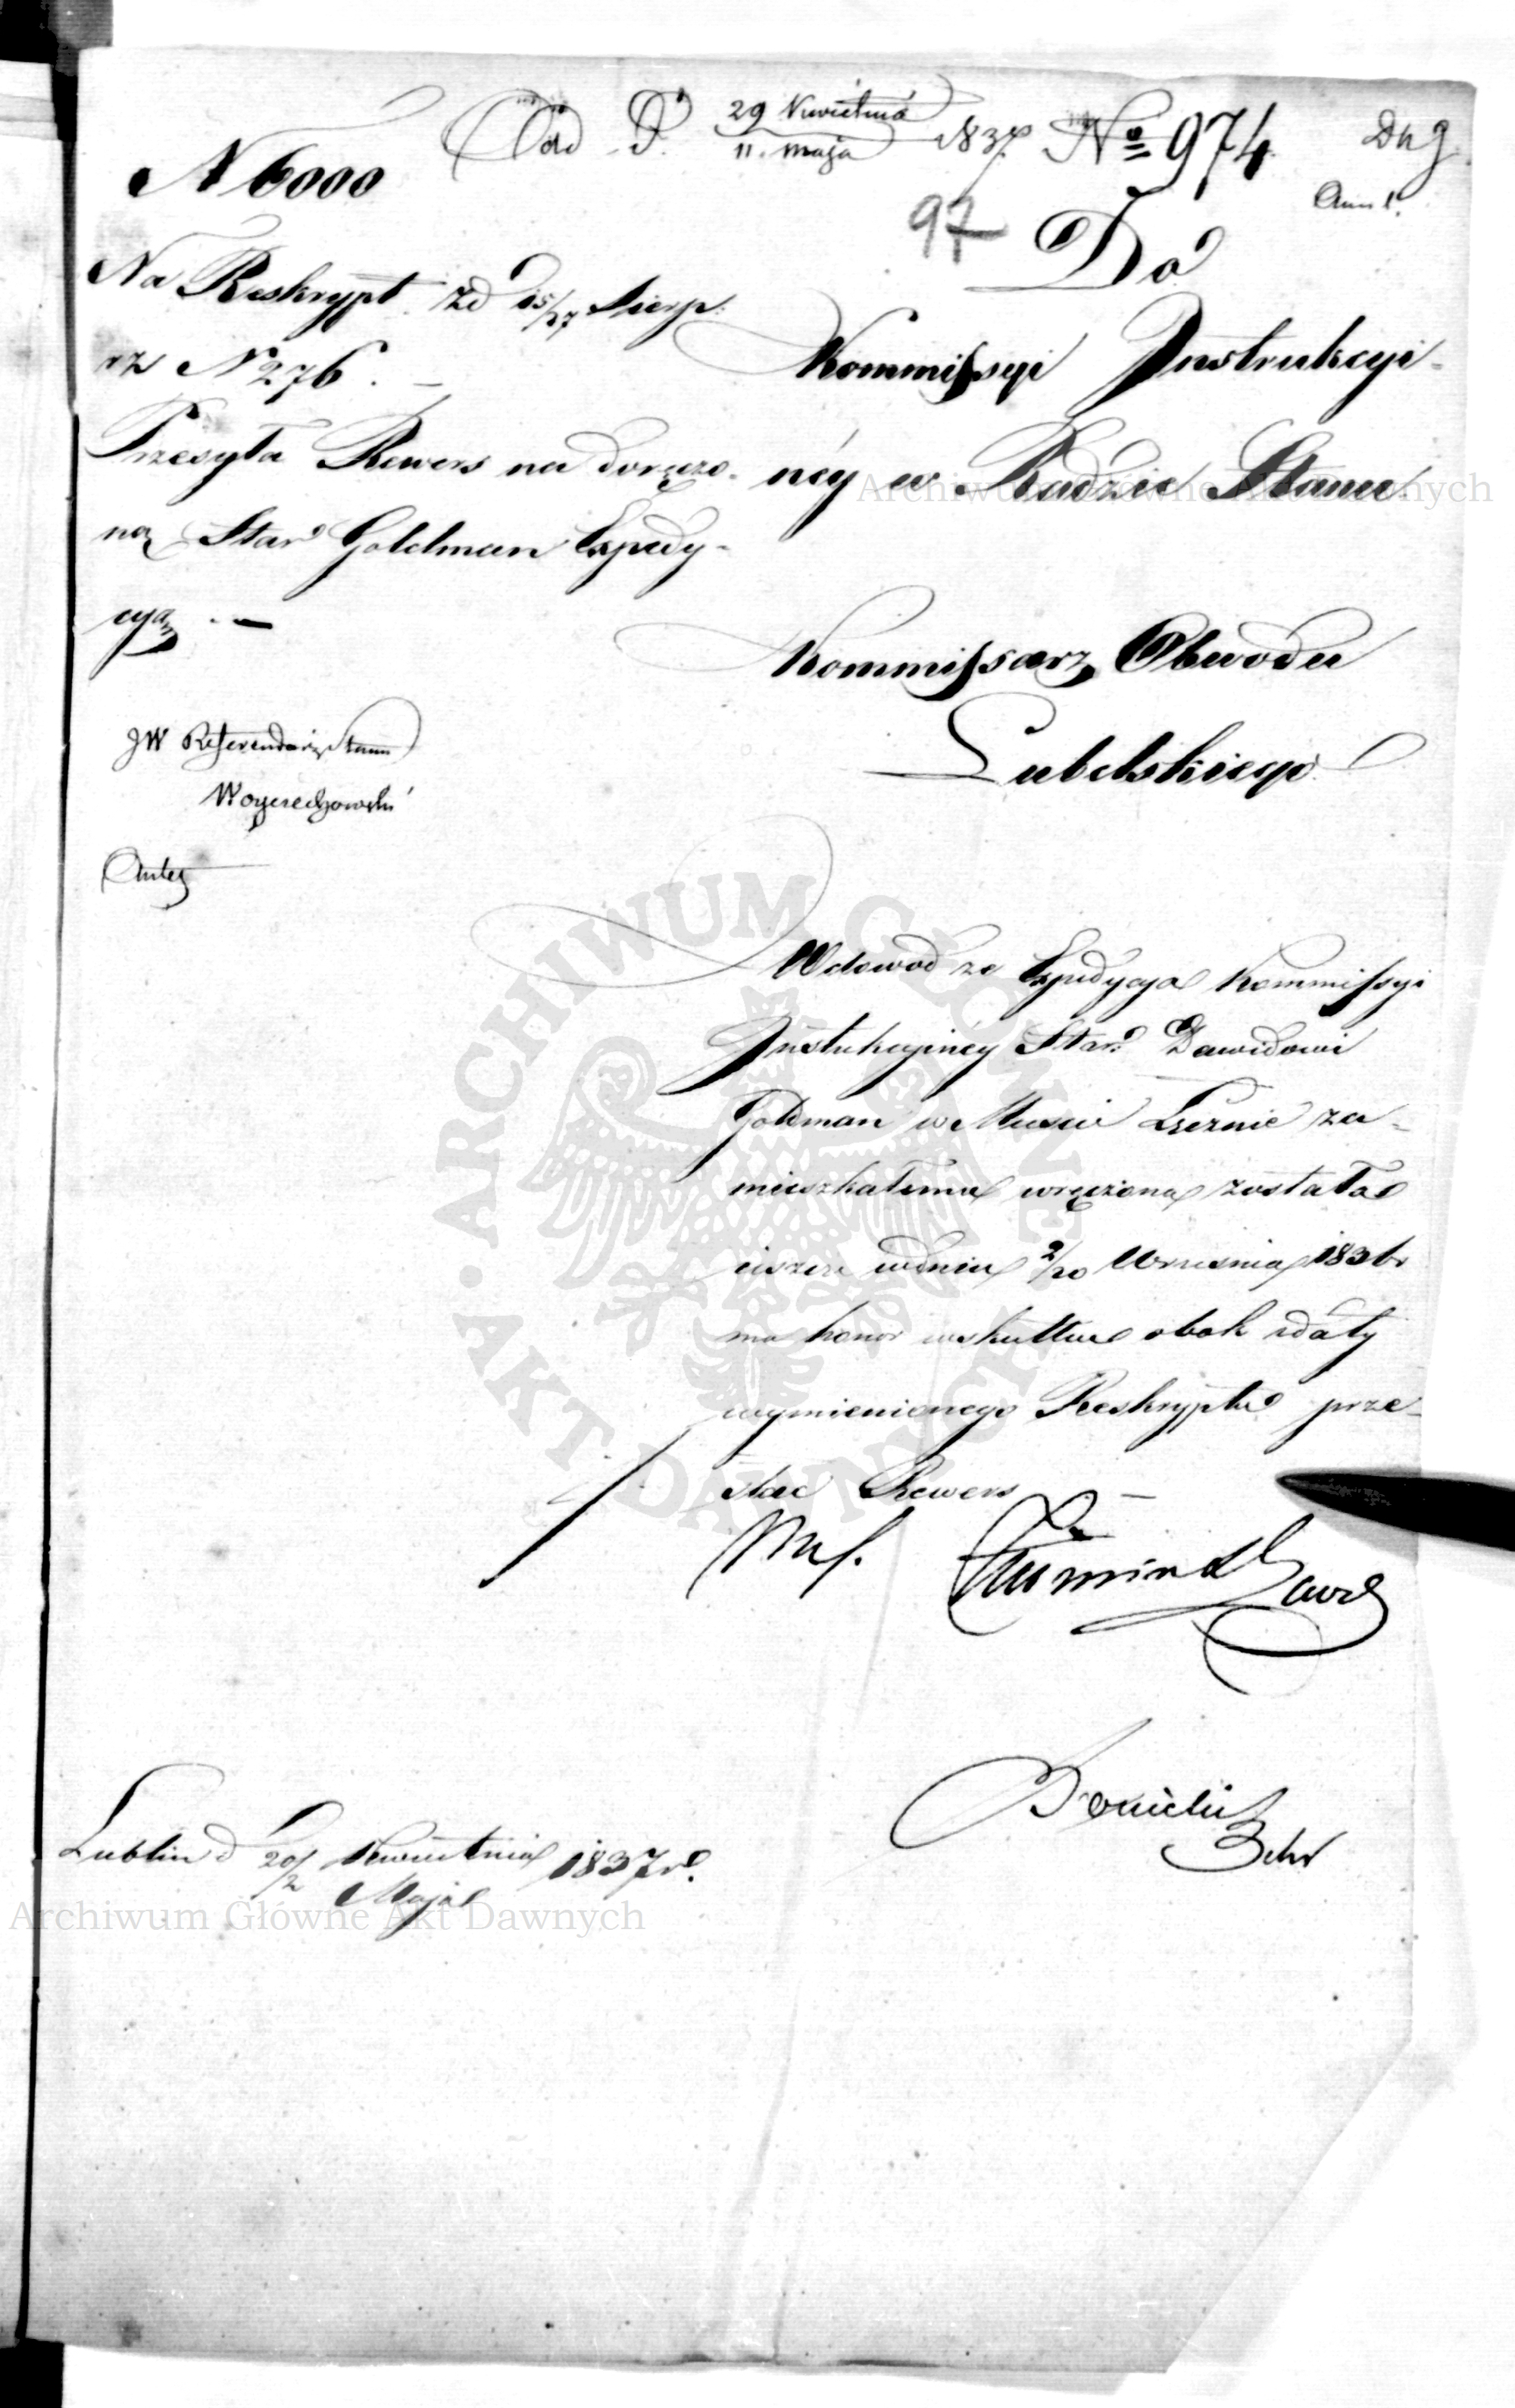 d. 29 Kwietnia 1837 № 974
11. maja
N 6000
97
Do
Na Reskrypt zd 15/27 Sierp.
rz N 276. –
Kommissyi Instrukcyi-
Przesyła Rewers na doręczo-
néy w Radzie Stanu
ną Star. Goldman Expedy-
cyą. –
Kommissarz Obwodu
Lubelskiego
JW Referendarz Stanu
Woyciechowski
W dowód że Expedycya Kommissyi
Instrukcyinéy Star. Dawidowi
Goldman w Mieście Łęcznie za-
mieszkałemu wręczona została
ieszcze w dniu 2/20 Wrzesnia 1836 r
ma honor w skutku obok z daty
wymienionego Reskryptu prze-
słać Rewers –
Lublin d 20/2 Kwietnia 1837 r.
Maja
Sekr
Archiwum Główne Akt Dawnych
Archiwum Główne Akt Dawnych
ARCHIWUM GŁÓWNE • AKT DAWNYCH •